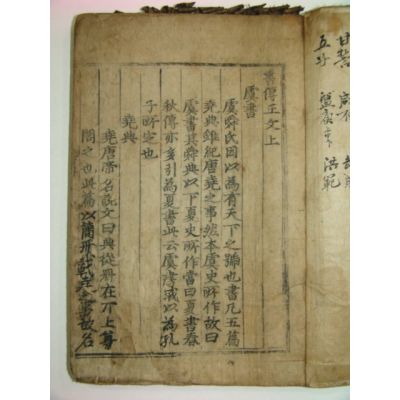 書傳正文上
虞書
虞舜氏因以為有天下之號也書凡五篇
堯典雖紀唐堯之事然本虞史所作故曰
虞書其舜典以下夏史所作當曰夏書春
秋傳亦多引為夏書此云虞書或以為孔
子所定也
堯典
堯唐帝名說文曰典從冊在丌上尊
閣之也此篇以簡冊載堯之事故名
甘誓
五子 盤庚 洪範